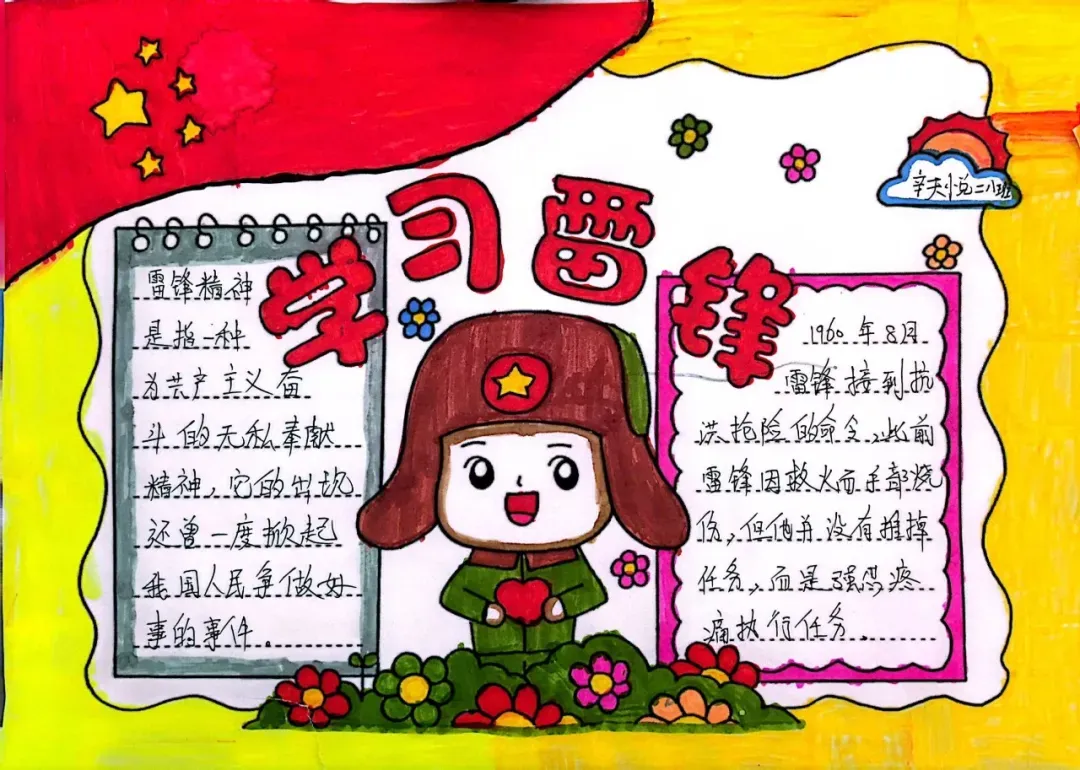 学习雷锋
辛夫小悦二八班
雷锋精神
是指一种
为共产主义奋
斗的无私奉献
精神,它的出现
还曾一度掀起
我国人民争做好
事的事件.
1960年8月
雷锋接到抗
洪抢险的命令,此前
雷锋因救火而手都烧
伤,但他并没有推掉
任务,而是强忍疼
痛执行任务.